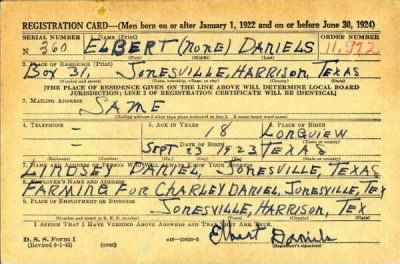 REGISTRATION CARD—(Men born on or after January 1, 1922 and on or before June 30, 1924)
SERIAL NUMBER 1. NAME (Print) ORDER NUMBER
N 360 ELBERT (NONE) DANIELS 11,992
(First) (Middle) (Last)
2. PLACE OF RESIDENCE (Print)
BOX 31, JONESVILLE, HARRISON, TEXAS
(Number and street) (Town, township, village, or city) (County) (State)
[THE PLACE OF RESIDENCE GIVEN ON THE LINE ABOVE WILL DETERMINE LOCAL BOARD
JURISDICTION; LINE 2 OF REGISTRATION CERTIFICATE WILL BE IDENTICAL]
3. MAILING ADDRESS
SAME
[Mailing address if other than place indicated on line 2. If same insert word same]
4. TELEPHONE 5. AGE IN YEARS 6. PLACE OF BIRTH
- 18 LONGVIEW
DATE OF BIRTH
- SEPT 23 1923 TEXAS
7. NAME AND ADDRESS OF PERSON WHO WILL ALWAYS KNOW YOUR ADDRESS
LINDSEY DANIEL, JONESVILLE, TEXAS
8. EMPLOYER'S NAME AND ADDRESS
FARMING FOR CHARLEY DANIEL, JONESVILLE, TEX
9. PLACE OF EMPLOYMENT OR BUSINESS
JONESVILLE, HARRISON, TEX
(Number and street or R. F. D. number) (Town) (County) (State)
I AFFIRM THAT I HAVE VERIFIED ABOVE ANSWERS AND THAT THEY ARE TRUE.
D. S. S. Form 1
(Revised 6-1-42) (over) Elbert Daniels